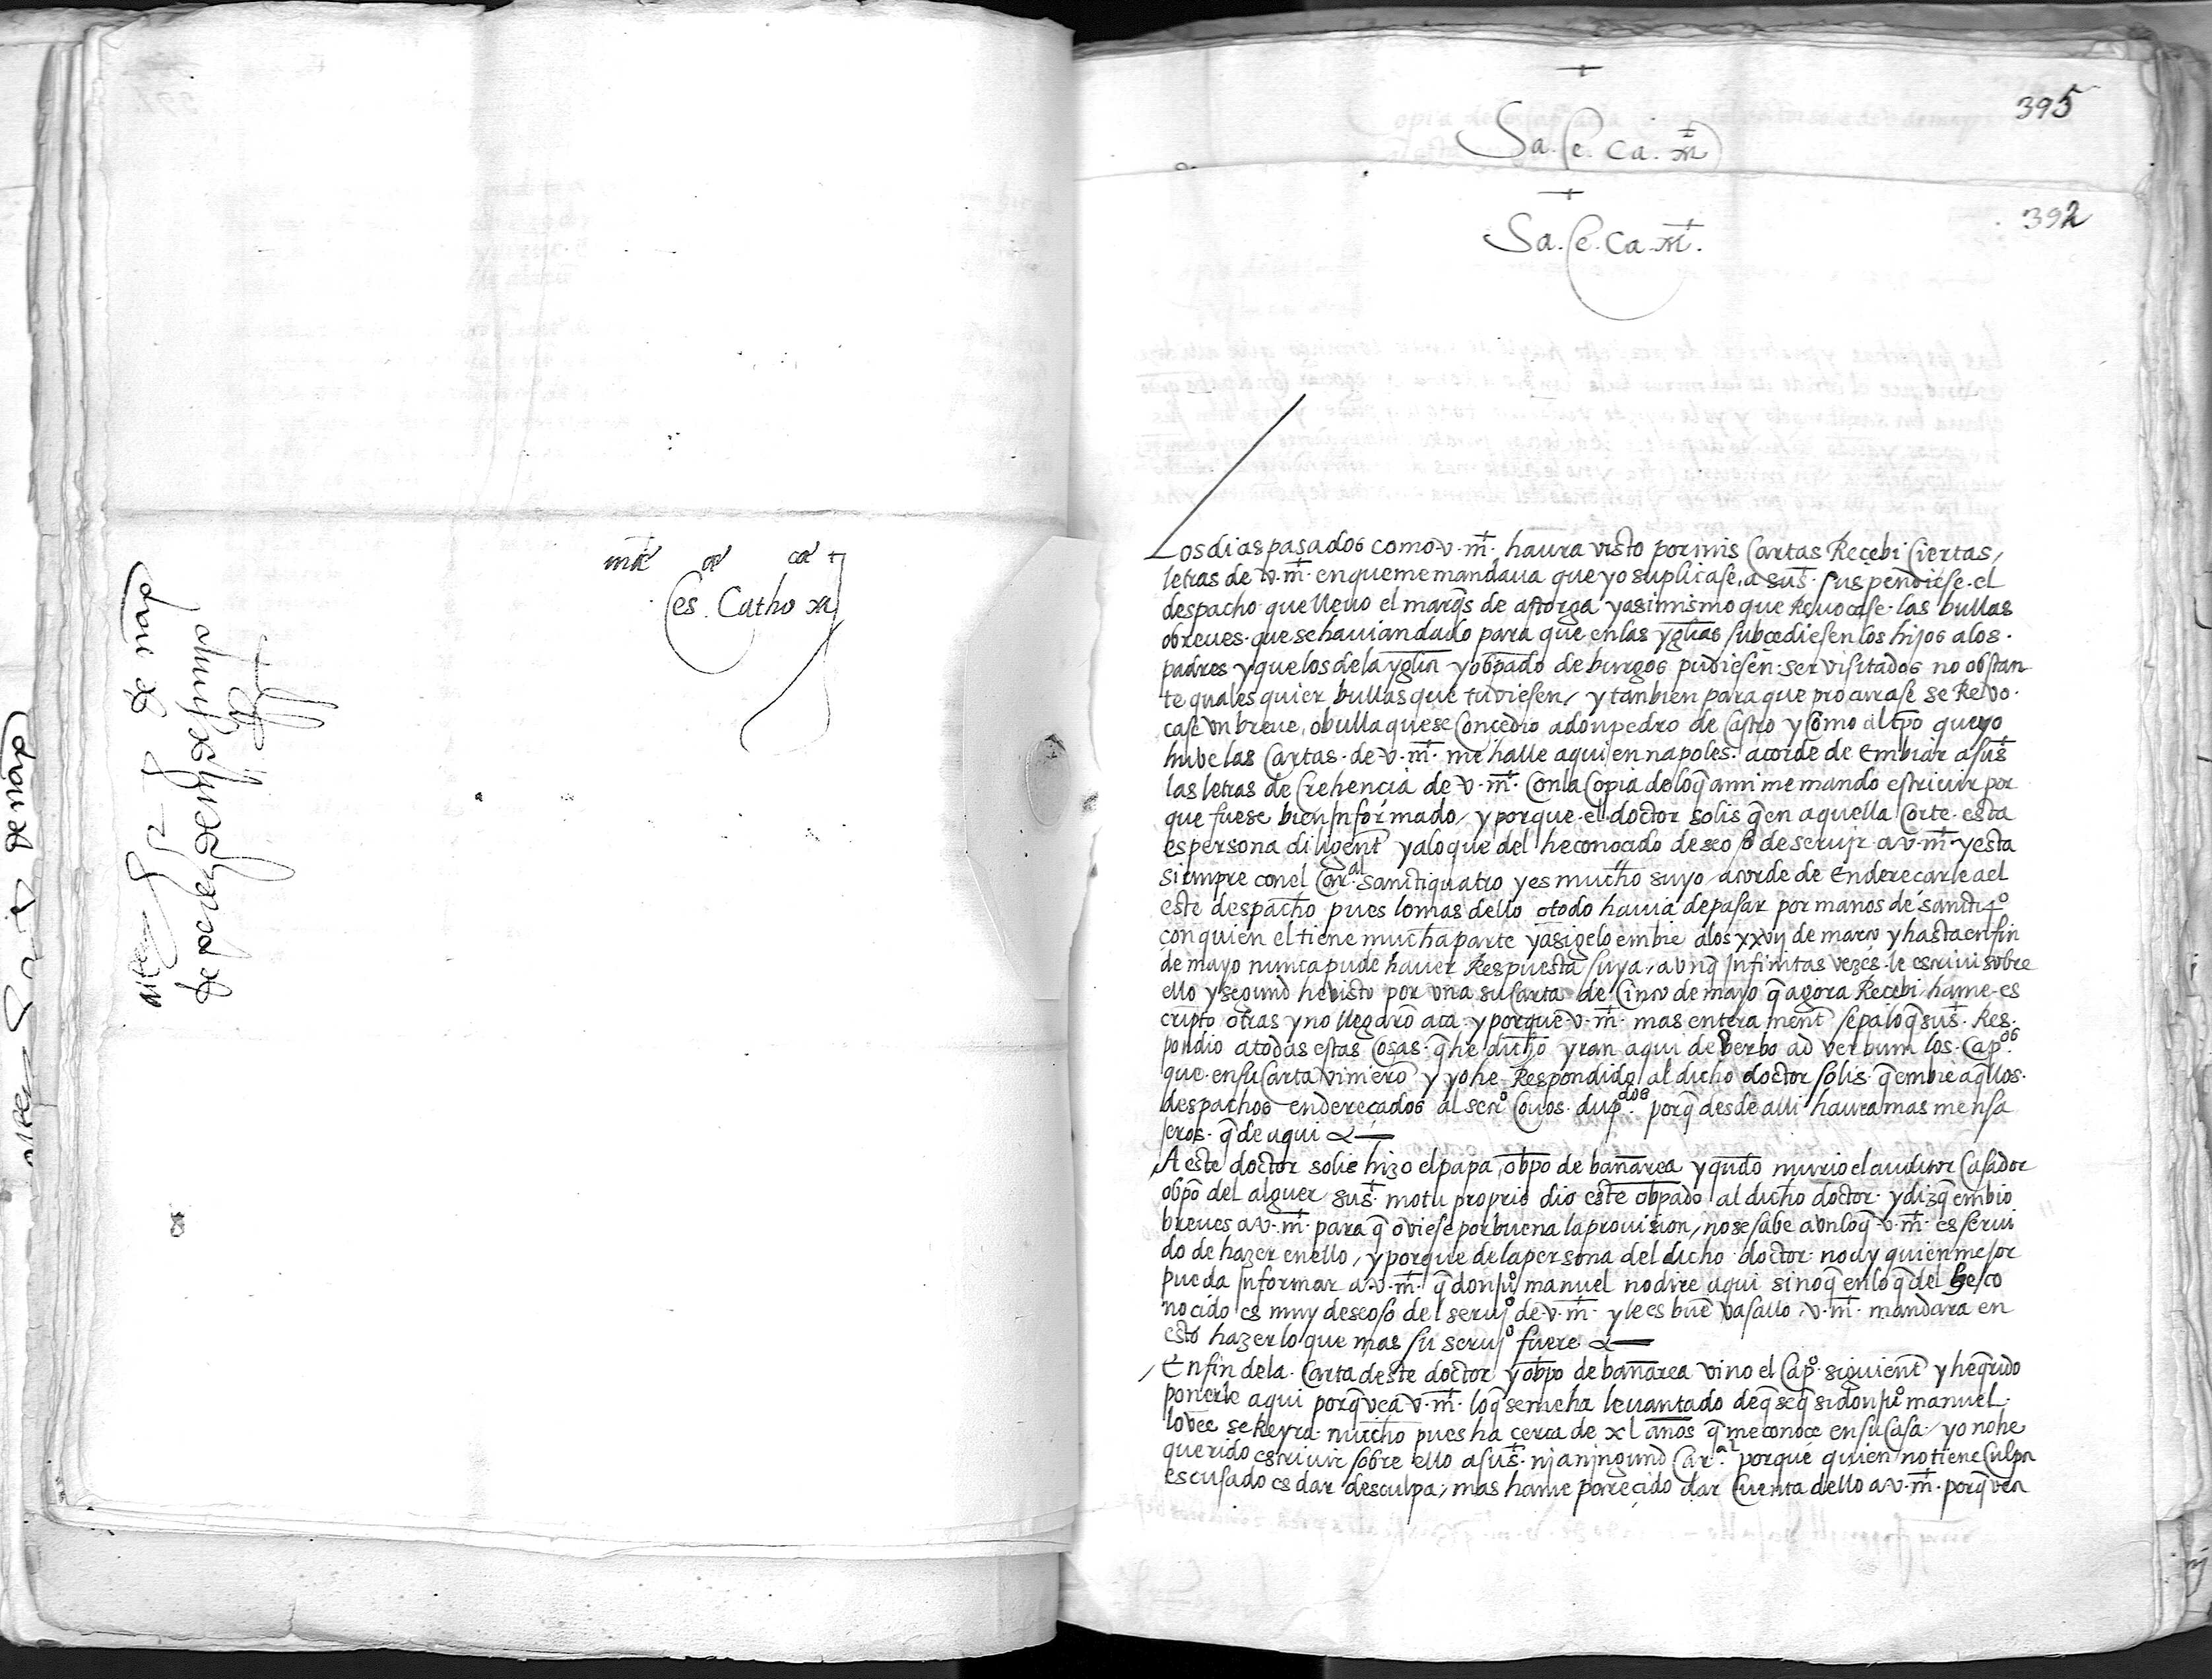 ma ca ca +
Ces. Catho. ma
395
+
Sa. Ce. Ca. mt
392
+
Sa. Ce. Ca. mt.
Los dias pasados como v. mt. haura visto por mis Cartas Recebi Ciertas
letras de v. mt. en que me mandaua que yo suplicase a sust. suspendiese el
despacho que lleuo el marqs de astorga y asi mismo que Reuocase las bullas
o breues que se hauian dado para que en las yglias subcediesen los hijos a los
padres y que los de la yglia y obpado de burgos pudiesen ser visitados no obstan
te quales quier bullas que tuviesen / y tanbien para que procurase se Revo
case vn breue o bulla que se Concedio a don pedro de Castro y Como al tpo que yo
hube las Cartas de v. mt. me halle aqui en napoles acorde de Embiar a sust
las letras de Crehencia de v. mt. Con la Copia de lo q a mi me mando escriuir por
que fuese bien Informado / y porque el doctor solis q en aquella Corte esta
es persona diligent y a lo que del he conocido deseoso de seruir a v. mt y esta
siempre con el Caral sanctiquatro y es mucho suyo acorde de Enderecarle a el
este despacho pues lo mas dello o todo hauia de pasar por manos de sancti 4o
con quien el tiene mucha parte y asi gelo embie a los xxvij de março y hasta en fin
de mayo nunca pude hauer Respuesta suya, avnq Infinitas vezes le escriui sobre
ello y segund he visto por vna su Carta de Cinco de mayo q agora Recebi hame es
cripto otras y no llegaro aca y porque v. mt. mas entera ment sepa lo q sust. Res
pondio a todas estas Cosas q he dicho yran aqui de verbo ad verbum los Capos
que en su Carta viniero y yo he Respondido al dicho doctor solis q embie aqllos
despachos endereçados al secro Couos dupdos porq desde alli haura mas mensa
jeros q de aqui &
A este doctor solis hizo el papa obpo de bañarea y qndo murio el auditor Casador
obpo del alguer sust. motu proprio dio este obpado al dicho doctor y diz q embio
breues a v. mt. para q oviese por buena la prouision, no se sabe avn lo q v. mt. es serui
do de hazer en ello, y porque de la persona del dicho doctor no ay quien mejor
pueda Informar a v. mt. q don juo manuel no dire aqui sino q en lo q del he co
nocido es muy deseoso del serujo de v. mt. y le es bue vasallo v. mt. mandara en
esto hazer lo que mas su serujo fuere &
En fin de la Carta deste doctor y obpo de bañarea vino el Capo siguient y he qrido
ponerle aqui porq vea v. mt. lo q se me ha leuantado de q se q si don juo manuel
lo vee se Reyra mucho pues ha cerca de xl años q me conoce en su Casa / yo no he
querido escriuir sobre ello a sust. nj a njngund Caral porque quien no tiene Culpa
escusado es dar desculpa, mas hame parecido dar Cuenta dello a v. mt. porq vea